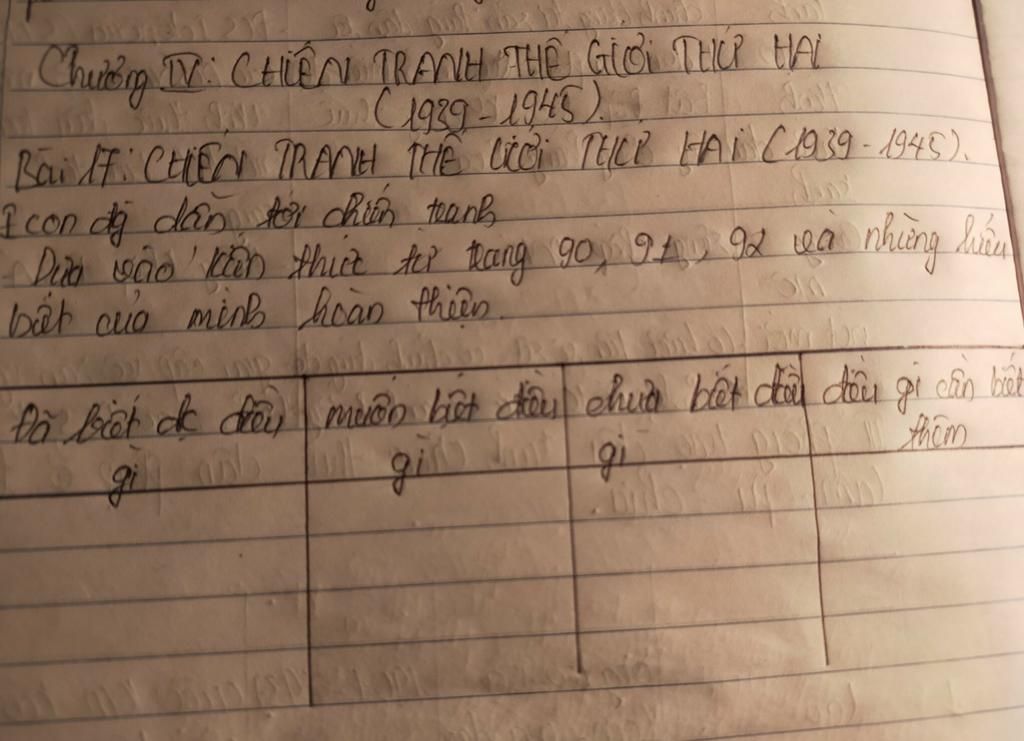 Chương IV: CHIẾN TRANH THẾ GIỚI THỨ HAI
(1939-1945).
Bài 17: CHIẾN TRANH THẾ GIỚI THỨ HAI (1939-1945).
I con đg dẫn tới chiến tranh
Dựa vào kiến thức từ trang 90, 91, 92 và những hiểu
biết của mình hoàn thiện.
Đã biết đc điều gì
muốn biết điều gì
chưa biết điều gì
điều gì cần biết thêm